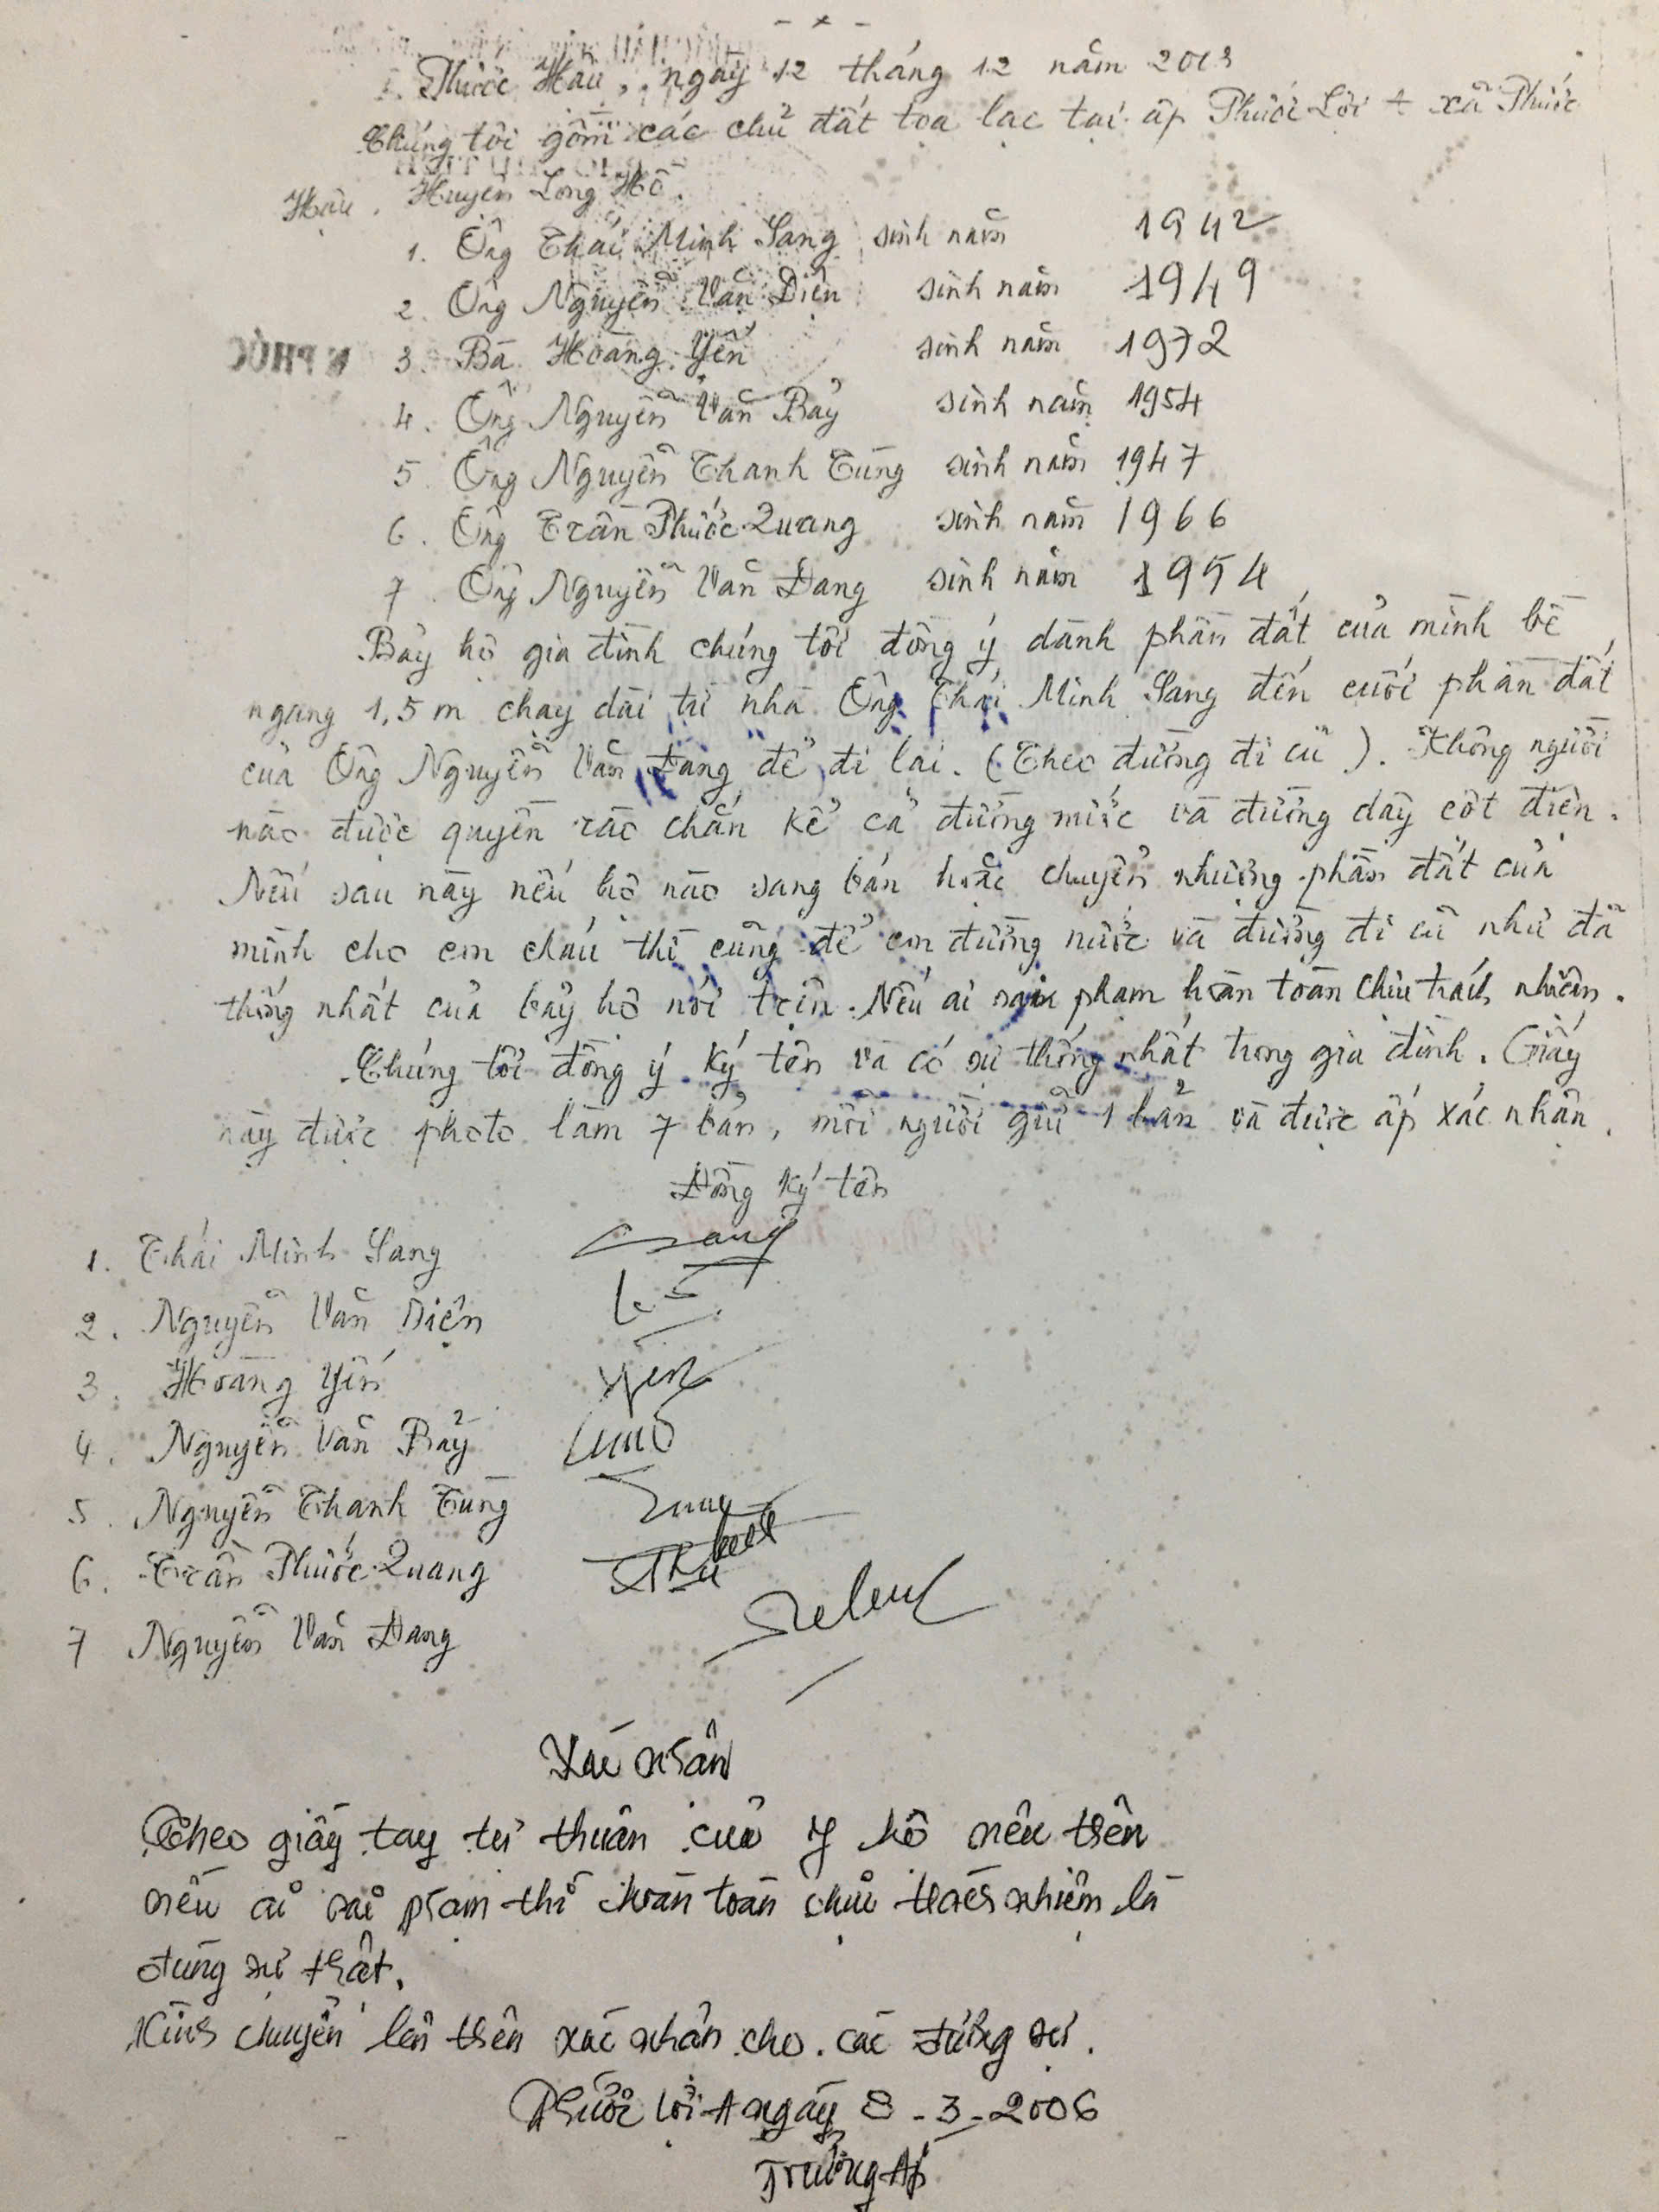 - x -
Phước Hậu, ngày 12 tháng 12 năm 2003
Chúng tôi gồm các chủ đất tọa lạc tại ấp Phước Lợi A xã Phước
Hậu, Huyện Long Hồ.
1. Ông Thái Minh Sang sinh năm 1942
2. Ông Nguyễn Văn Diện sinh năm 1949
3. Bà Hoàng Yến sinh năm 1972
4. Ông Nguyễn Văn Bảy sinh năm 1954
5. Ông Nguyễn Thanh Tùng sinh năm 1947
6. Ông Trần Phước Quang sinh năm 1966
7. Ông Nguyễn Văn Đang sinh năm 1954
Bảy hộ gia đình chúng tôi đồng ý dành phần đất của mình bề
ngang 1,5m chạy dài từ nhà Ông Thái Minh Sang đến cuối phần đất
của Ông Nguyễn Văn Đang để đi lại. (Theo đường đi cũ). Không người
nào được quyền rào chắn kể cả đường nước và đường dây cột điện.
Nếu sau này nếu hộ nào sang bán hoặc chuyển nhượng phần đất của
mình cho con cháu thì cũng để con đường nước và đường đi cũ như đã
thống nhất của bảy hộ nói trên. Nếu ai phạm hoàn toàn chịu trách nhiệm.
Chúng tôi đồng ý ký tên và có sự thống nhất trong gia đình. Giấy
này được photo làm 7 bản, mỗi người giữ 1 bản và được ấp xác nhận.
Đồng ký tên
1. Thái Minh Sang Sang
2. Nguyễn Văn Diện
3. Hoàng Yến Yến
4. Nguyễn Văn Bảy
5. Nguyễn Thanh Tùng
6. Trần Phước Quang
7 Nguyễn Văn Đang
Xác nhận
Theo giấy tay tự thuận của 7 hộ nêu trên
nếu ai vi phạm thì hoàn toàn chịu trách nhiệm là
đúng sự thật.
Kính chuyển lên trên xác nhận cho các đương sự.
Phước Lợi A ngày 8-3-2006
Trưởng Ấp